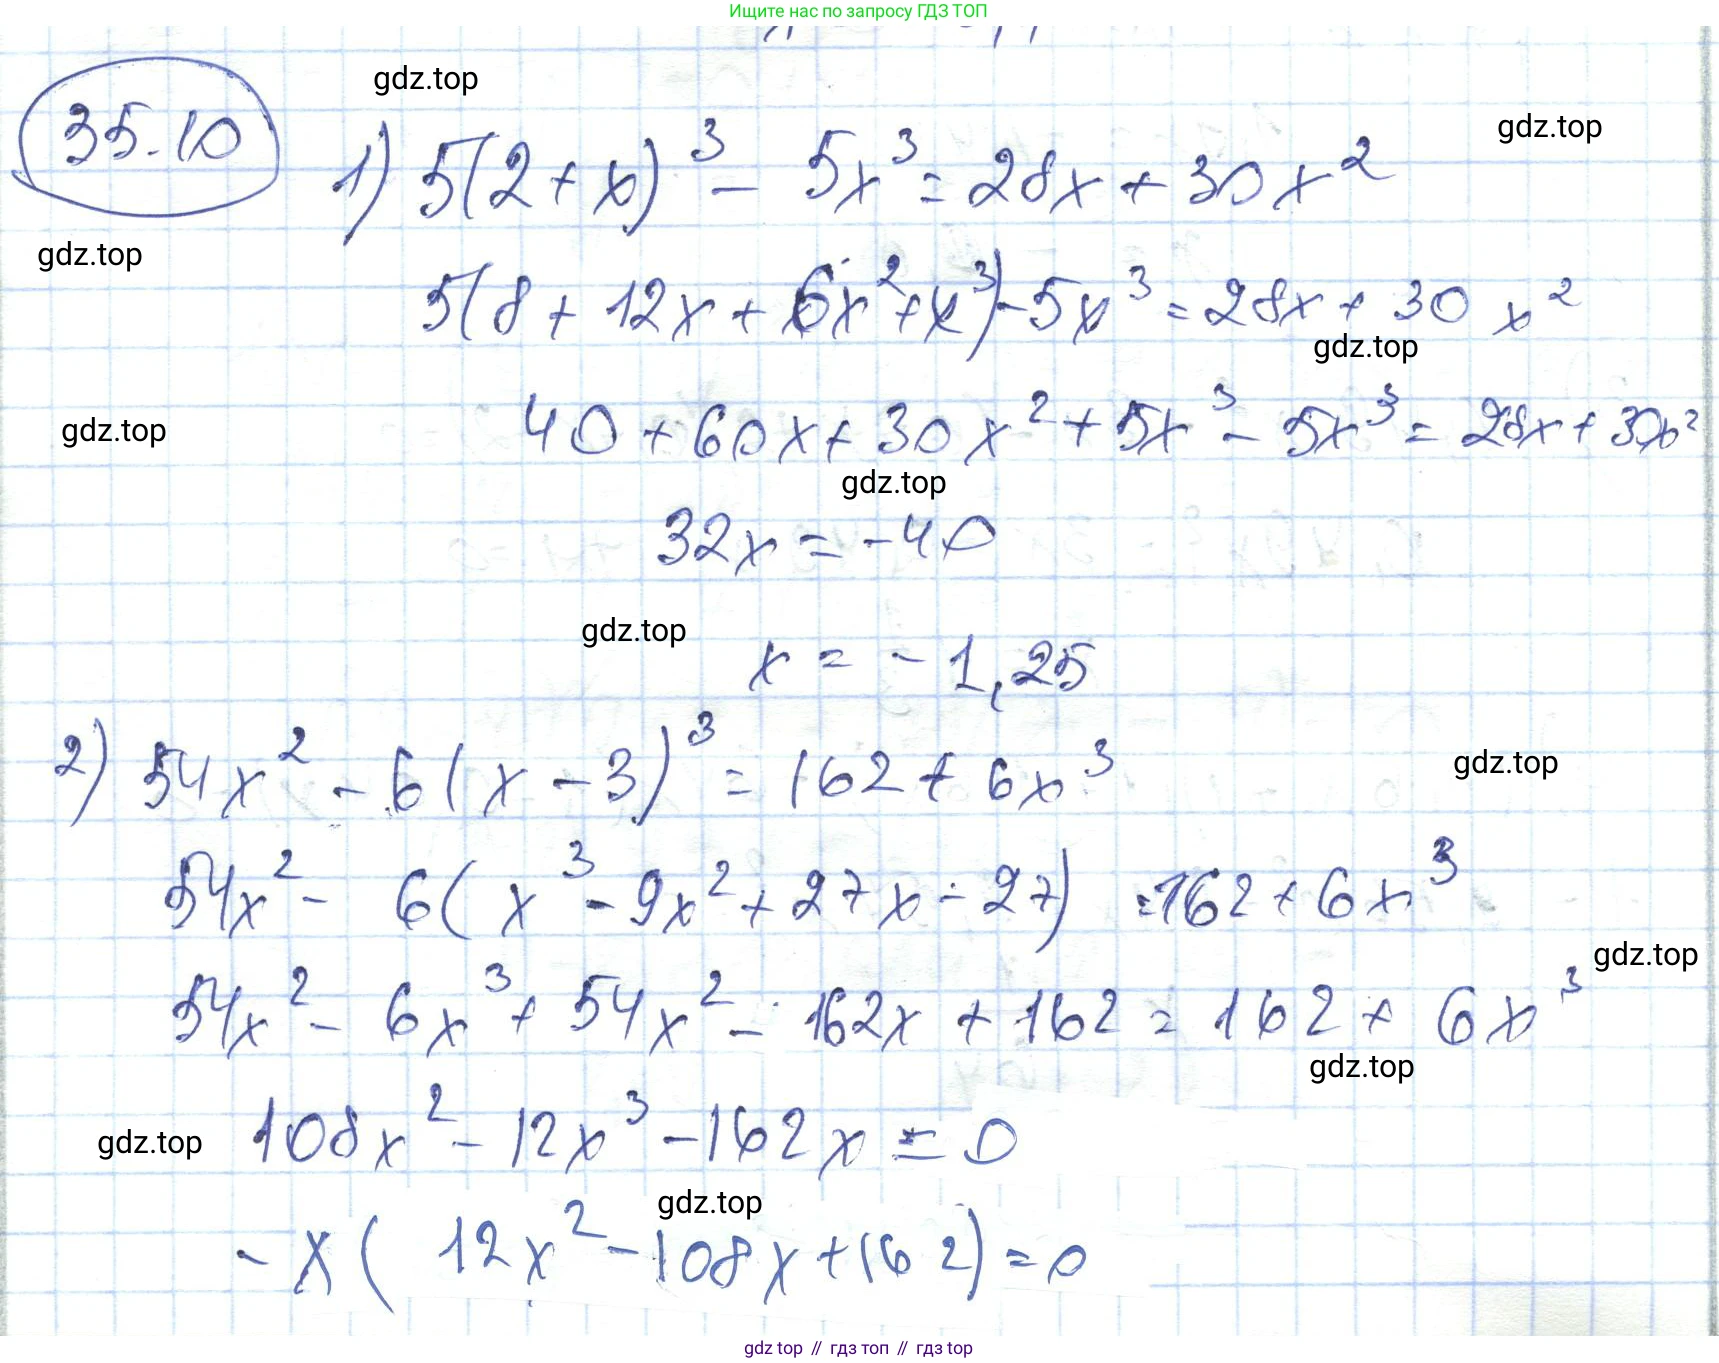 Ищите нас по запросу ГДЗ ТОП
gdz.top
35.10
gdz.top
1) 5(2 + x)³ - 5x³ = 28x + 30x²
gdz.top
5(8 + 12x + 6x² + x³) - 5x³ = 28x + 30x²
gdz.top
gdz.top
40 + 60x + 30x² + 5x³ - 5x³ = 28x + 30x²
gdz.top
32x = -40
gdz.top
x = -1,25
2) 54x² - 6(x - 3)³ = 162 + 6x³
gdz.top
54x² - 6(x³ - 9x² + 27x - 27) = 162 + 6x³
gdz.top
54x² - 6x³ + 54x² - 162x + 162 = 162 + 6x³
gdz.top
108x² - 12x³ - 162x = 0
gdz.top
gdz.top
- x(12x² - 108x + 162) = 0
gdz top // гдз топ // gdz top